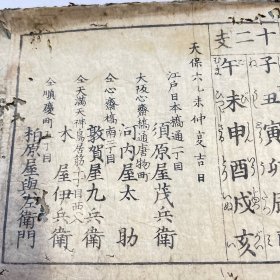 十二支
子丑寅卯辰
午未申酉戌亥
天保六乙未仲夏吉日
江戸日本橋通一丁目
須原屋茂兵衛
大阪心斎橋通唐物町
河内屋太助
仝心斎橋南一丁目
敦賀屋九兵衛
仝天満天神鳥居筋十丁目西入
木屋伊兵衛
仝順慶町五丁目
柏原屋與左衛門